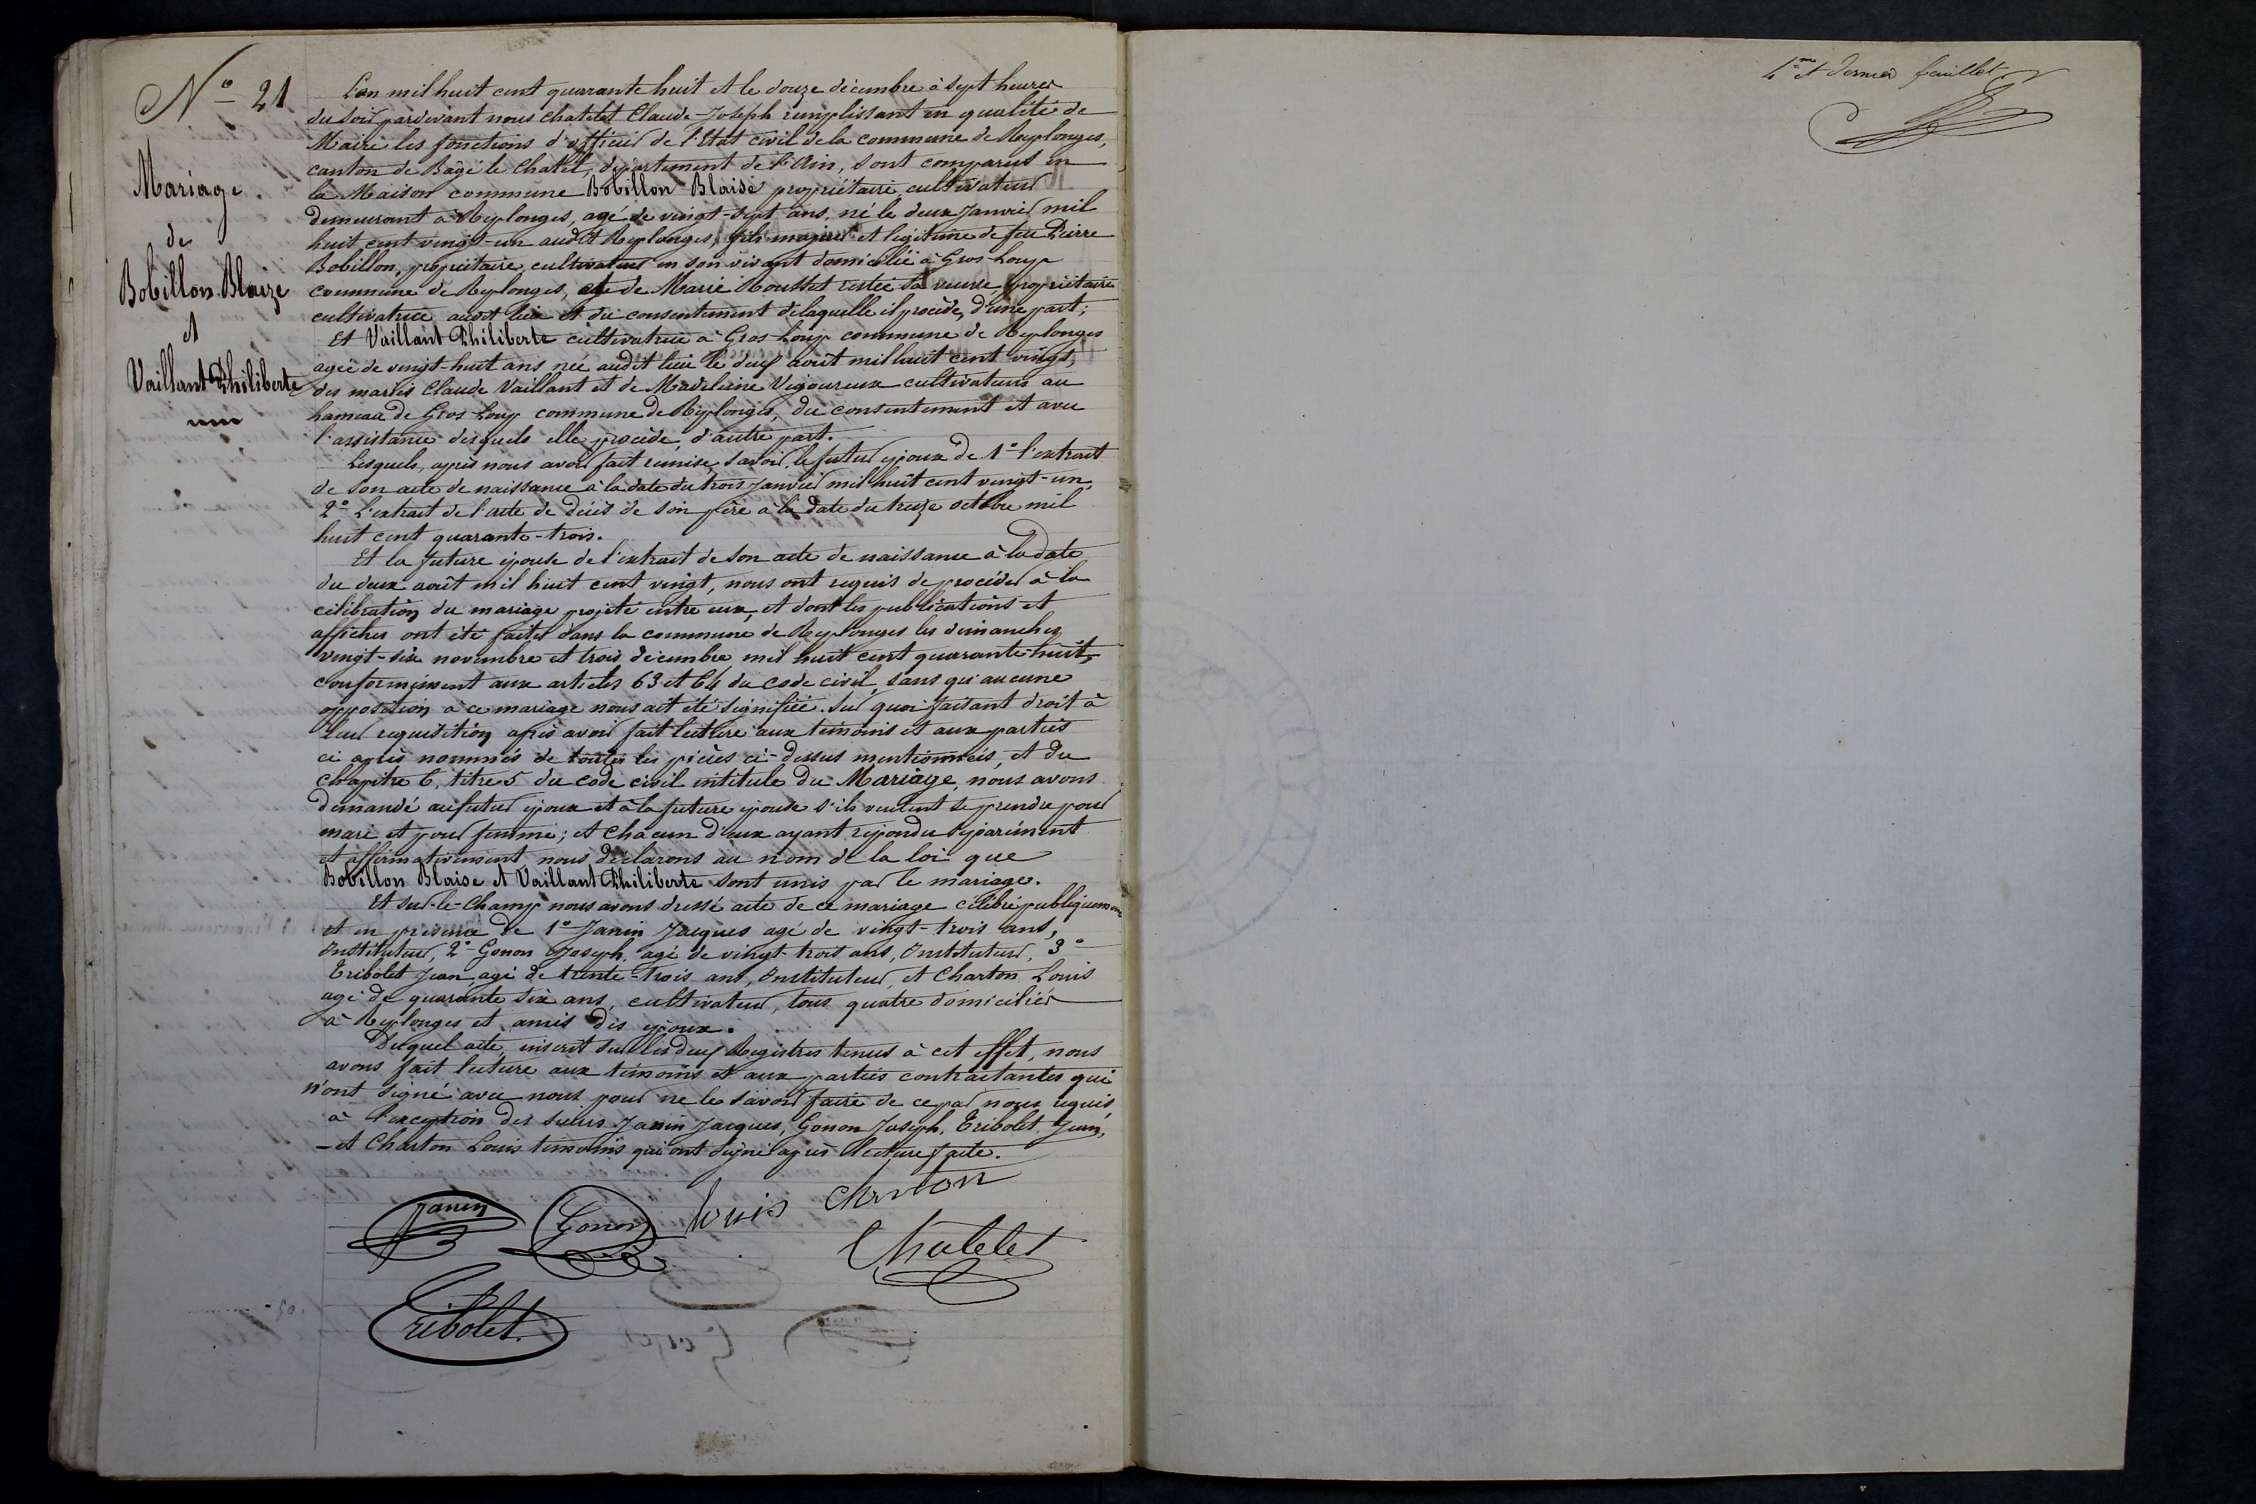 N° 21
Mariage
de
Bobillon Blaize
et
Vaillant Philiberte
L'an mil huit cent quarante huit et le douze décembre à sept heures
du soir pardevant nous Chatelet Claude-Joseph remplissant en qualité de
Maire les fonctions d'officier de l'Etat civil de la commune de Replonges,
canton de Bagé le Chatel, département de l'Ain, sont comparus en
la Maison commune Bobillon Blaise propriétaire cultivateur
demeurant à Replonges, agé de vingt-sept ans, né le deux Janvier mil
huit cent vingt-un audit Replonges, fils majeur et légitime de feu Pierre
Bobillon, propriétaire cultivateur en son vivant domicilié à Gros-Loup
commune de Replonges, et de Marie Rousset restée sa veuve, propriétaire
cultivatrice audit lieu et du consentement delaquelle il procède, d'une part;
Et Vaillant Philiberte cultivatrice à Gros Loup commune de Replonges
agée de vingt-huit ans née audit lieu le deux août mil huit cent vingt,
des mariés Claude Vaillant et de Madelaine Vigoureux cultivateurs au
hameau de Gros Loup commune de Replonges, du consentement et avec
l'assistance desquels elle procède, d'autre part.
Lesquels, après nous avoir fait remise, savoir, le futur époux de 1° l'extrait
de son acte de naissance à la date du trois Janvier mil huit cent vingt-un,
2° L'extrait de l'acte de décès de son père à la date du treize octobre mil
huit cent quarante-trois.
Et la future épouse de l'extrait de son acte de naissance à la date
du deux août mil huit cent vingt, nous ont requis de procéder à la
célébration du mariage projeté entre eux, et dont les publications et
affiches ont été faites dans la commune de Replonges les dimanches
vingt-six novembre et trois décembre mil huit cent quarante-huit,
conformément aux articles 63 et 64 du code civil, sans qu'aucune
opposition à ce mariage nous ait été signifiée. Sur quoi faisant droit à
leur requisition après avoir fait lecture aux témoins et aux parties
ci après nommés de toutes les pièces ci-dessus mentionnées, et du
chapitre 6, titre 5 du code civil intitulé du Mariage, nous avons
demandé au futur époux et à la future épouse s'ils veulent se prendre pour
mari et pour femme; et chacun d'eux ayant répondu séparément
et affirmativement, nous déclarons au nom de la loi que
Bobillon Blaise et Vaillant Philiberte sont unis par le mariage.
Et sur-le-Champ nous avons dressé acte de ce mariage célébré publiquement
et en présence de 1° Janin Jacques agé de vingt-trois ans,
Instituteur, 2° Gonon Joseph, agé de vingt-trois ans, Instituteur, 3°
Tribolet Jean, agé de trente-trois ans, Instituteur, et Charton Louis
agé de quarante six ans, cultivateur, tous quatre domiciliés
à Replonges et amis des époux.
Duquel acte, inscrit sur les deux Registres tenus à cet effet, nous
avons fait lecture aux témoins et aux parties contractantes qui
n'ont signé avec nous pour ne le savoir faire de ce par nous requis,
à l'exception des sieurs Janin Jacques, Gonon Joseph, Tribolet Jean,
et Charton Louis témoins qui ont signé après lecture faite.
Janin Gonon Louis Charton
Chatelet
Tribolet
4me et dernier feuillet